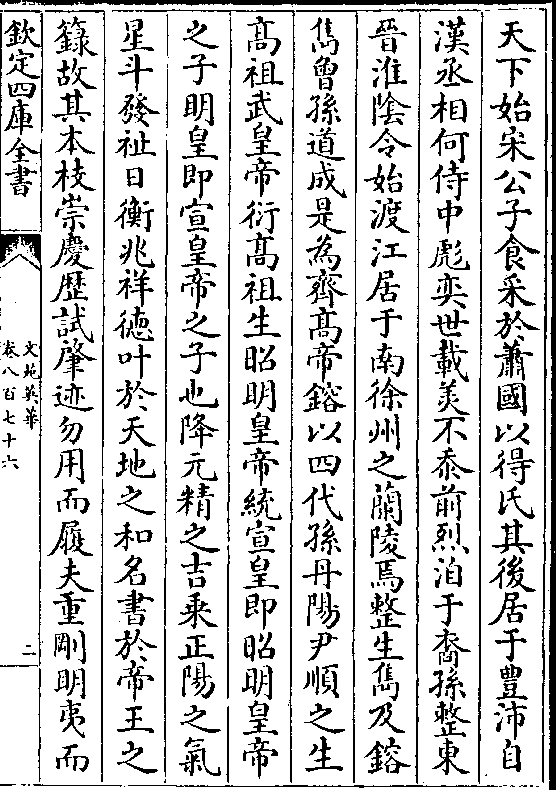 天下始宋公子食采於蕭國以得氏其後居于豊沛自
漢丞相何侍中彪奕世載美不忝前烈洎于裔孫整東
晉淮陰令始渡江居于南徐州之蘭陵焉整生雋及鎋
雋曽孫道成是為齊髙帝鎋以四代孫丹陽尹順之生
髙祖武皇帝衍髙祖生昭明皇帝統宣皇即昭明皇帝
之子明皇即宣皇帝之子也降元精之吉乗正陽之氣
星斗發祉日衡兆祥徳叶於天地之和名書於帝王之
籙故其本枝崇慶歴試肇迹勿用而履夫重剛明夷而
欽定四庫全書
文苑英華
卷八百七十六
二